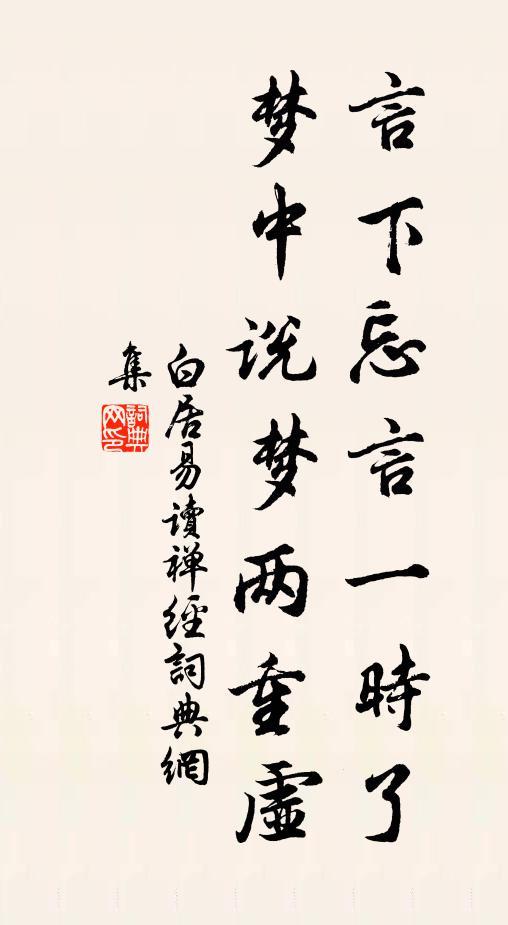 言下忘言一時了
梦中说梦两重虛
白居易讀禅經詞典網
集
詞典
网印